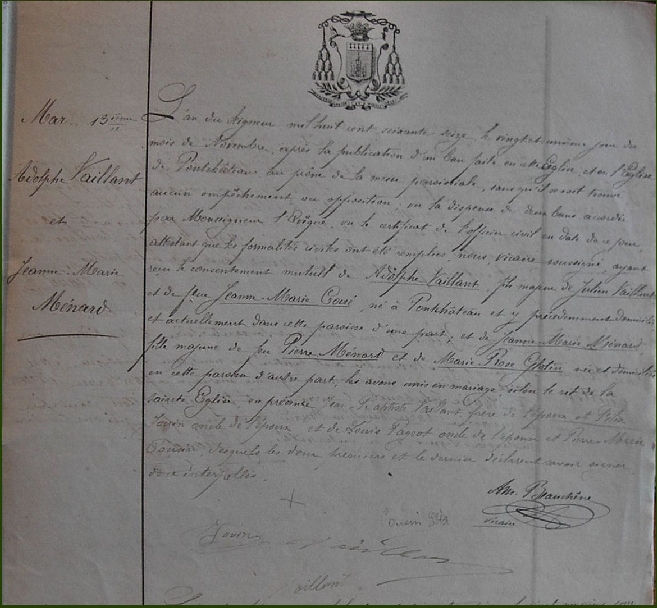 Mar. 13ième
Adolphe Vaillant
et
Jeanne-Marie
Ménard
L'an du Seigneur mil huit cent soixante seize le vingt et unième jour du
mois de Novembre, après la publication d'un ban faite en cette Eglise et en l'Eglise
de Pontchâteau au prône de la messe paroissiale, sans qu'il se soit trouvé
aucun empêchement, ou opposition, vu la dispense de deux bans accordée
par Monseigneur l'Evêque, vu le certificat de l'officier civil en date de ce jour
attestant que les formalités civiles ont été remplies, nous, vicaire soussigné, ayant
reçu le consentement mutuel de Adolphe Vaillant, fils majeur de Julien Vaillant
et de feue Jeanne-Marie né à Pontchâteau et y précédemment domicilié
et actuellement dans cette paroisse d'une part; et de Jeanne-Marie Ménard
fille majeure de feu Pierre Ménard et de Marie Rose née et domiciliée
en cette paroisse d'autre part, les avons unis en mariage selon le rit de la
sainte Eglise en présence de Jean Baptiste Vaillant frère de l'époux et
oncle de l'époux et de Louis oncle de l'épouse et Pierre Marie
desquels les deux premiers et le dernier déclarent avoir signer